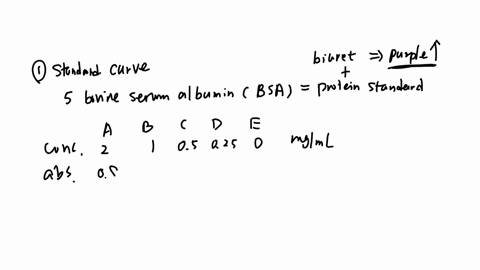 ① Standard curve
biuret ⇒ purple ↑
+
5 bovine serum albumin (BSA) = protein standard
A B C D E
conc. 2 1 0.5 0.25 0 mg/mL
abs.